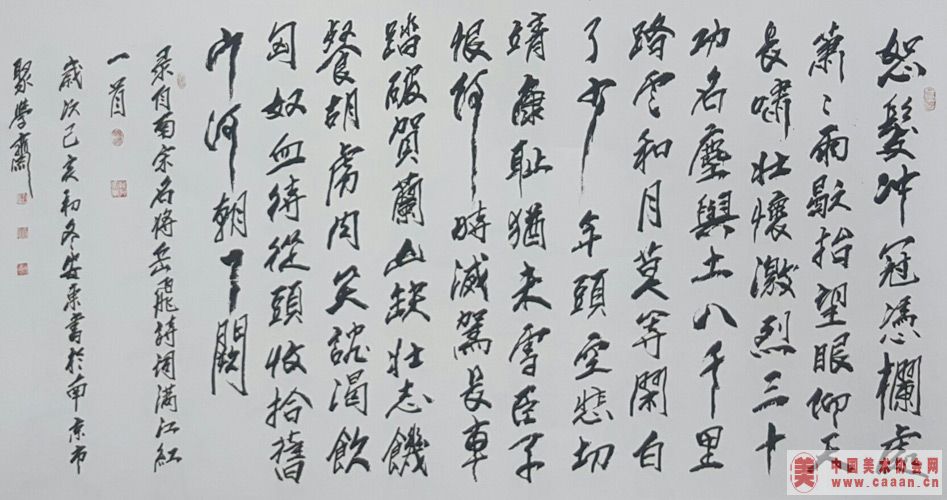 怒髮冲冠憑欄處
蕭〻雨歇抬望眼仰天
長嘯壯懷激烈三十
功名塵與土八千里
路雲和月莫等閑白
了少年頭空悲切
靖康恥猶未雪臣子
恨何時滅駕長車
踏破賀蘭山缺壯志饑
餐胡虜肉笑談渴飲
匈奴血待從頭收拾舊
山河朝天闕
录自南宋名將岳飛詩詞滿江紅
一首
歲次己亥初冬安東書於南京市
聚學齋
美 中国美术协会网
www.caaan.cn